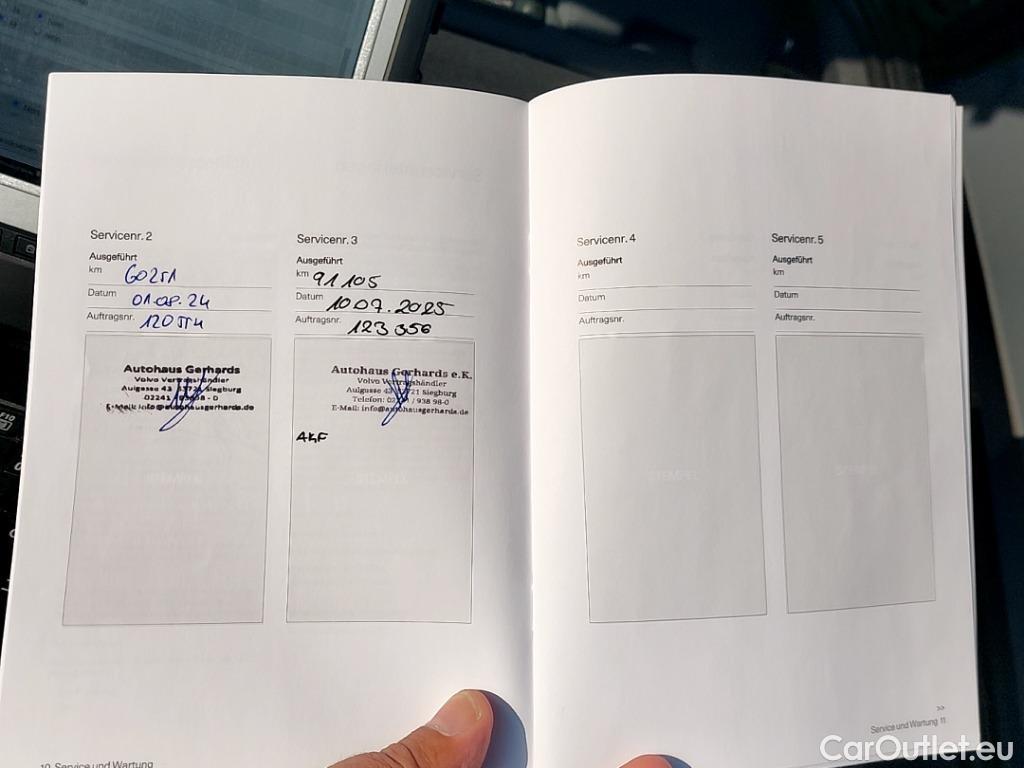 Servicenr. 2
Ausgeführt
km 60251
Datum 01.08.24
Auftragsnr. 120574
Autohaus Gerhards
Volvo Vertragshändler
Aulgasse 43 53721 Siegburg
02241 / 938 98 - 0
E-Mail: info@autohausgerhards.de
Servicenr. 3
Ausgeführt
km 91105
Datum 10.07.2025
Auftragsnr. 123 356
Autohaus Gerhards e.K.
Volvo Vertragshändler
Aulgasse 43 53721 Siegburg
Telefon: 02241 / 938 98-0
E-Mail: info@autohausgerhards.de
STEMPEL
Servicenr. 4
Ausgeführt
km
Datum
Auftragsnr.
STEMPEL
Servicenr. 5
Ausgeführt
km
Datum
Auftragsnr.
STEMPEL
10 Service und Wartung
>>
Service und Wartung 11
CarOutlet.eu